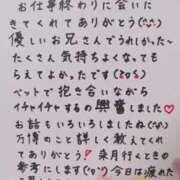 お仕事終わりに会いに
きてくれてありがとう(^^)
優しいお兄さんでうれしかった
たくさん気持ちよくなっても
らえてよかったです(≧▽≦)
ベットで抱き合いながら
イチャイチャするの興奮しました♥
お話もいろいろしましたね(^^)
万博のこと詳しく教えてくれ
てありがとう！来月行くときの
参考にします(^^)今日は疲れた